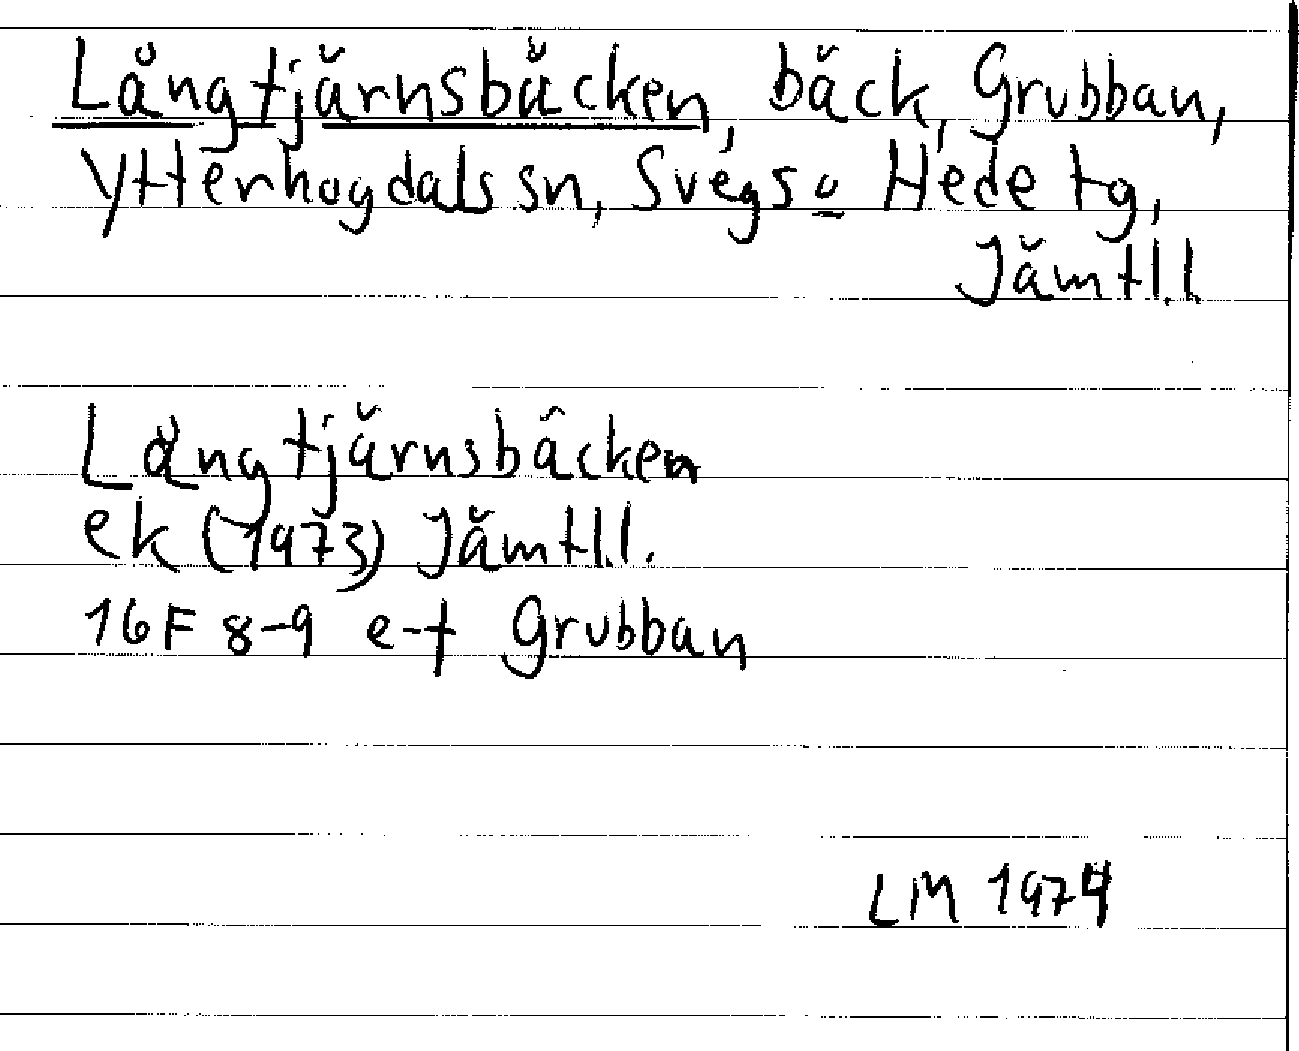 Långtjärnsbäcken, bäck, Grubban,
Ytterhogdals sn, Svegs o Hede tg,
Jämtl.l
Långtjärnsbäcken
ek (1973) Jämtl.l.
16F 8-9 e-f Grubban
LM 1974